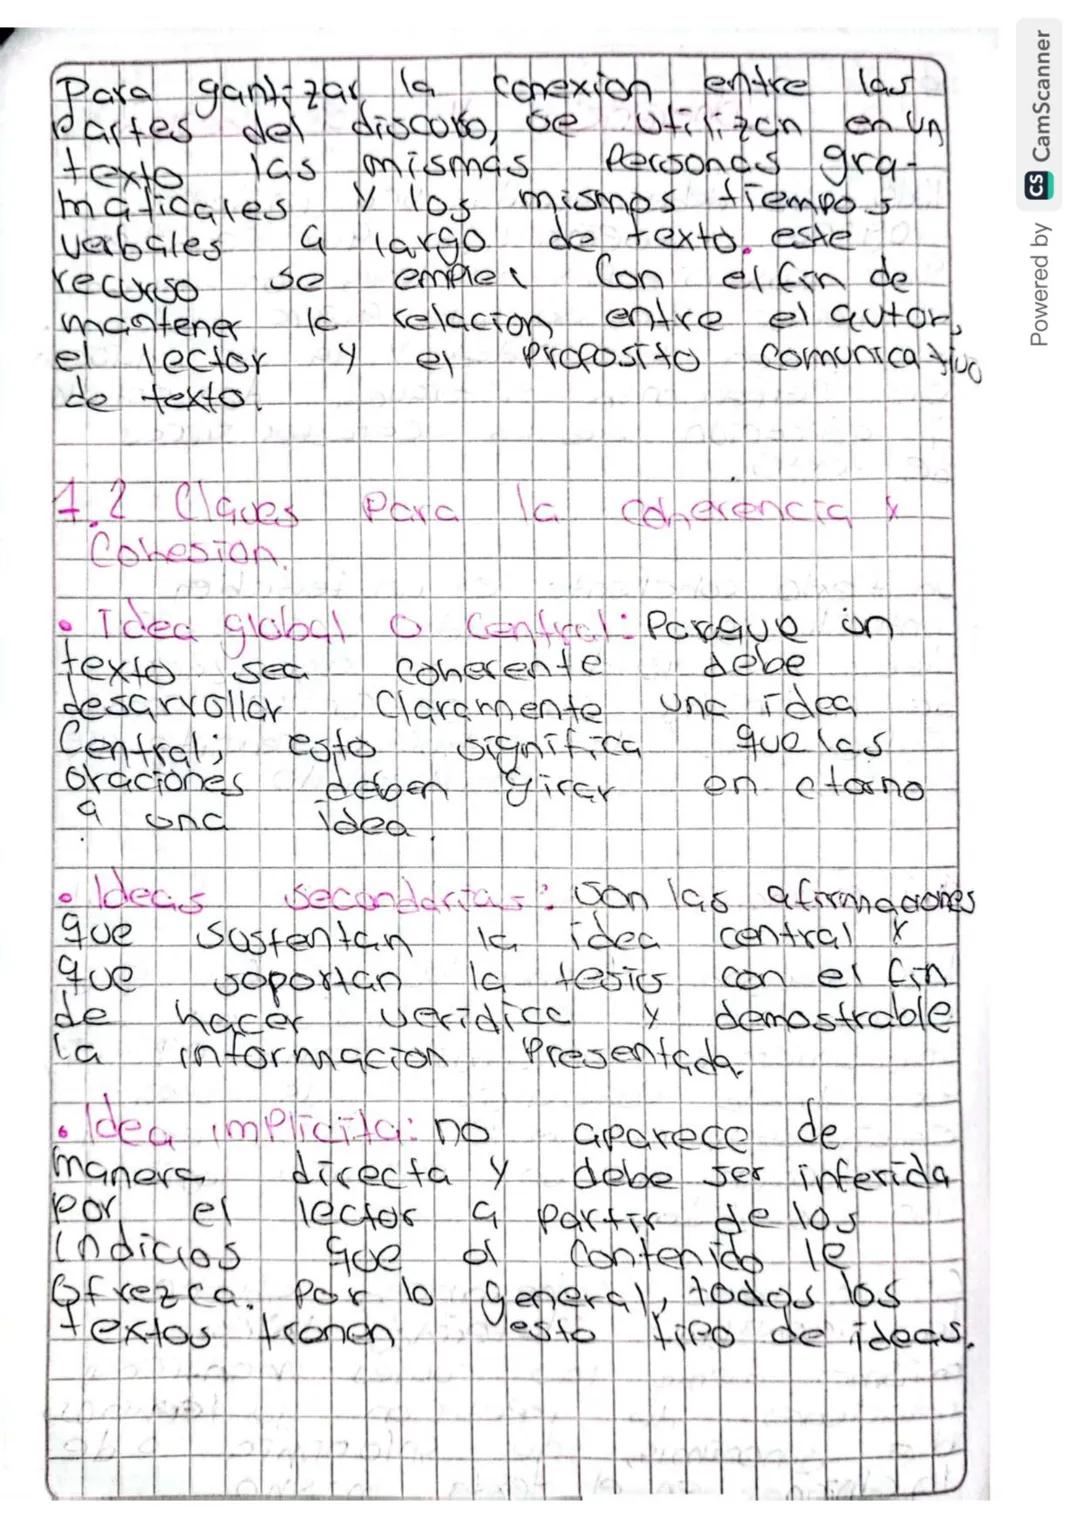 Para gantizar la conexion entre las
Partes del discurso, se utilizan en un
texto las mismas Personas gra-
maticales y los mismos tiempos
verbales a largo de texto. este
recurso se emplea Con el fin de
mantener la relacion entre el autor,
el lector y el Proposito comunicativo
de texto.
1.2 Claves Para la coherencia y
Cohesion.
• Idea global o central: Paraque un
texto sea coherente debe
desarrollar Claramente una idea
Central; esto significa que las
oraciones deben girar en etorno
a una idea.
• Ideas secondarias: son las afirmaciones
que sustentan la idea central y
que soportan la tesis con el fin
de hacer veridica y demostrable
la informacion Presentada.
• Idea implicita: no aparece de
manera directa y debe ser inferida
por el lector a partir de los
indicios que el contenido le
Ofrezca. Por lo general, todos los
textos tienen esto tipo de ideas.
Powered by CS CamScanner